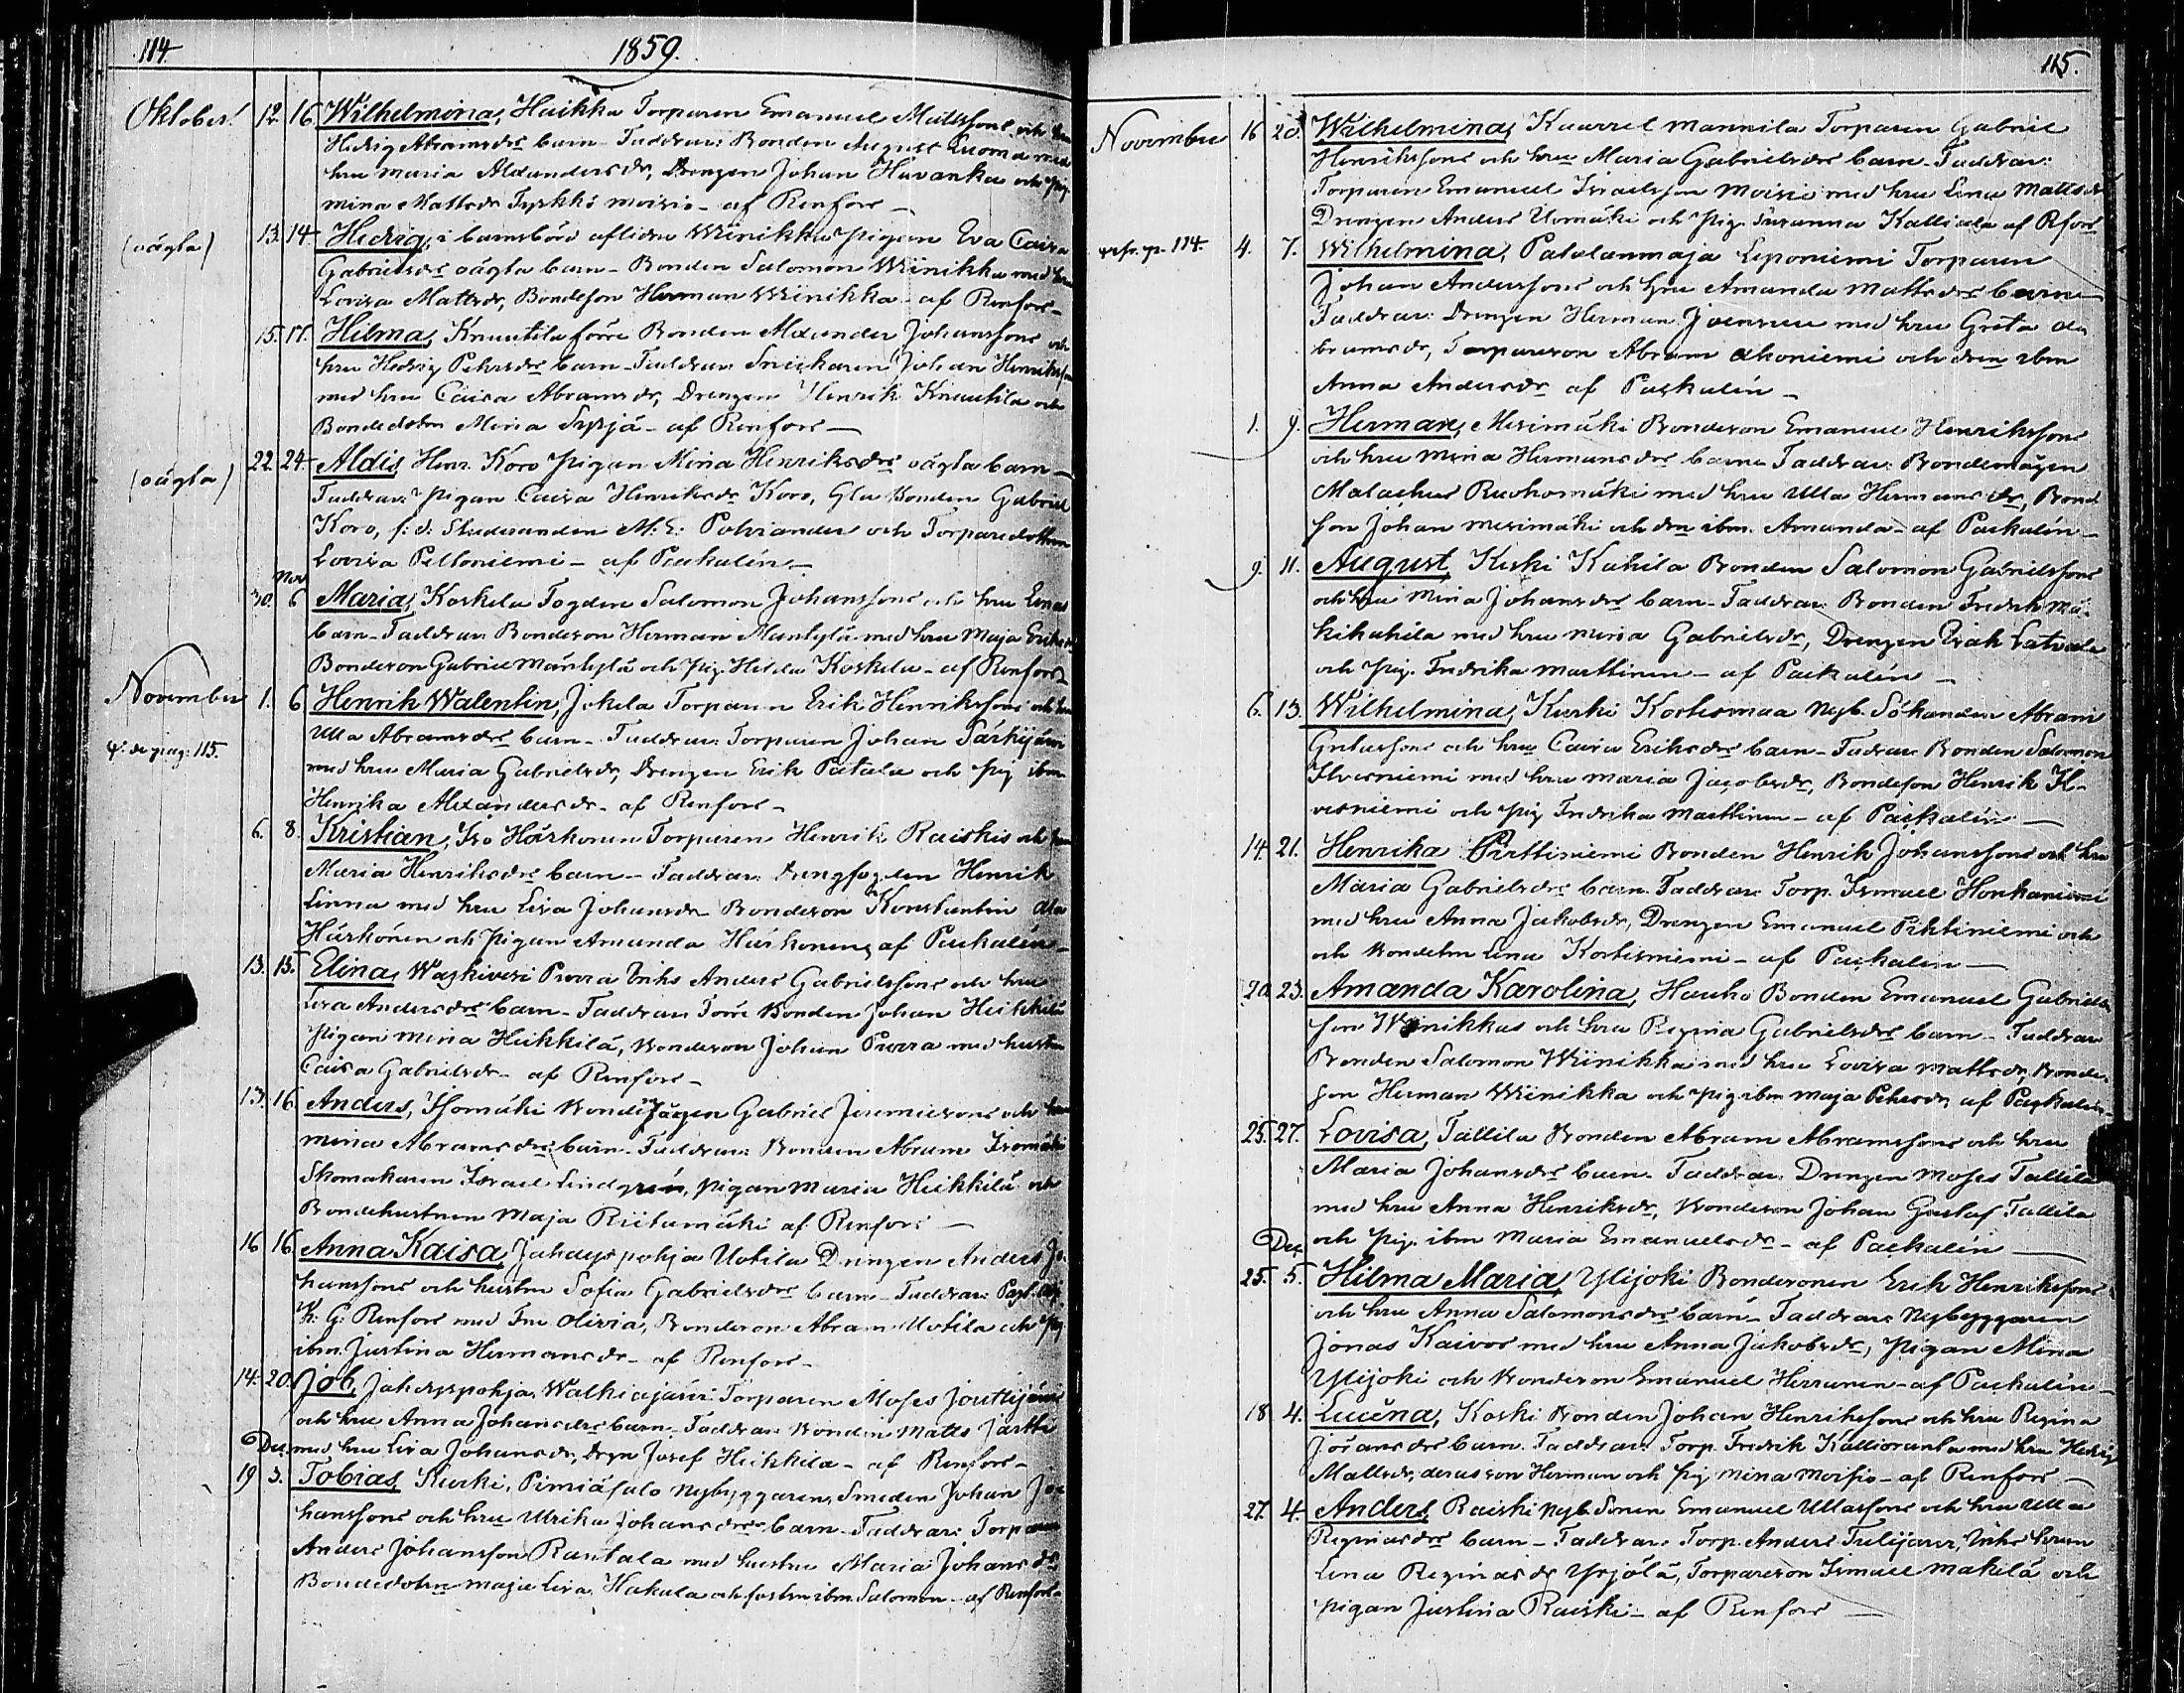 114.
1859.
Oktober. 12. 16. Wilhelmina, Huikku Torparen Emanuel Mattssons och hru
Hedvig Abramsdrs barn - Faddrar: Bonden August Luoma med
hru Maria Alexandersdr, Drengen Johan Havanka och pig.
Mina Mattsdr Tyrkkö moisio - af Renfors -
(oägta) 13. 14. Hedvig, i barnsbörd aflidna Wiinikka pigan Eva Caisa
Gabrielsdrs oägta barn - Bonden Salomon Wiinikka med hru
Lovisa Mattsdr, Bondeson Herman Wiinikka - af Renfors -
15. 17. Hilma, Knuutila förre Bonden Alexander Johanssons och
hru Hedvig Pehrsdrs barn - Faddrar: Snickaren Johan Henriksson
med hru Caisa Abramsdr, Drengen Henrik Knuutila och
Bondedotren Mina Sipjä - af Renfors -
(oägta) 22. 24. Aldis, Henr. Koro pigan Mina Henriksdrs oägta barn -
Faddrar: pigan Caisa Henriksdr Koro, Gla Bonden Gabriel
Koro, f: d: Studeranden M: E: Polviander och Torparedottren
Lovisa Peltoniemi - af Paskalin -
Nov
30. 6 Maria, Koskela Fogden Salomon Johanssons och hru Linas
barn - Faddrar: Bondeson Herman Mäntylä med hru Maja Eriksdr
Bondeson Gabriel Mäntylä och pig. Hilda Koskela - af Renfors -
November 1. 6 Henrik Walentin, Jokela Torparen Erik Henrikssons och hru
Ulla Abramsdrs barn - Faddrar: Torparen Johan Särkijärvi
4: de pag: 115.
med hru Maria Gabrielsdr, Drengen Erik Patala och pig ibm
Henrika Alexandersdr - af Renfors -
6. 8. Kristian, Iso Härkönen Torparen Henrik Raiskis och hru
Maria Henriksdrs barn - Faddrar: Drengfogden Henrik
Linna med hru Lisa Johansdr Bondeson Konstantin Ala
Härkönen och pigan Amanda Härkönen, af Paskalin -
13. 15. Elina, Waskivesi Purra Enks Anders Gabrielssons och hru
Lisa Andersdrs barn - Faddrar: Förre Bonden Johan Heikkilä
Pigan Mina Heikkilä, Bondeson Johan Purra med hustru
Caisa Gabrielsdr - af Renfors -
13. 16. Anders, Isomäki Bondemågen Gabriel Jeremiesons och hru
Mina Abramsdrs barn - Faddrar: Bonden Abram Isomäki
Skomakaren Israel Lindgrén, pigan Maria Heikkilä och
Bondehustrun Maja Riitamäki af Renfors -
16 16. Anna Kaisa, Jahdyspohja Uotila Drengen Anders Jo-
hanssons och hustru Sofia Gabrielsdrs barn - Faddrar: Past. adj.
K: G: Renfors med Fru Olivia, Bondeson Abram Uotila och pig
ibm. Justina Hermansdr - af Renfors -
14. 20. Job, Jahdyspohja, Walkiajärvi Torparen Moses Jouttijärvi
och hru Anna Johansdrs barn - Faddrar: Bonden Matts Jartti
Dec. med hru Lisa Johansdr, Drgn Josef Heikkilä - af Renfors -
19 3. Tobias, Kurki, Pimiäsalo Nybyggaren, Smeden Johan Jo-
hanssons och hru Ulrika Johansdrs barn - Faddrar: Torparen
Anders Johansson Rantala med hustru Maria Johansdr
Bondedotrn Maja Lisa Hakala och fostrn ibm. Salomon - af Renfors -
115.
November 16 20. Wilhelmina, Kaarrel mannila Torparen Gabriel
Henrikssons och hru Maria Gabrielsdrs barn - Faddrar:
Torparen Emanuel Israelsson Moisio med hru Lena Mattsdr
Drengen Anders Uomäki och pig. Susanna Kalliala af Rfors
refr. p. 114. 4. 7. Wilhelmina, Patalanmaja Leponiemi Torparen
Johan Anderssons och hru Amanda Mattsdrs barn
Faddrar: Drengen Herman Joensuu med hru Greta Ab-
bramsdr, Torpareson Abram Ahoniemi och dren ibm
Anna Andersdr af Paskalin -
1. 9. Herman, Merimäki Bondeson Emanuel Henrikssons
och hru Mina Hermansdrs barn Faddrar: Bondemågen
Malachus Ruohomäki med hru Ulla Hermansdr, Bond
son Johan Merimäki och drn ibm. Amanda - af Paskalin -
9. 11. August, Keski Kahila Bonden Salomon Gabrielssons
och hru Mina Johansdrs barn - Faddrar: Bonden Fredrik Mä-
kikahila med hru Mina Gabrielsdr, Drengen Isak Latvala
och pig. Fredrika Marttinen - af Paskalin -
6. 13. Wilhelmina, Kurki Kortesmaa Nyb. Sökanden Abram
Gustafssons och hru Caisa Eriksdrs barn - Fadrar: Bonden Salomon
Ilvesniemi med hru Maria Jacobsdr, Bondeson Henrik Il-
vesniemi och pig Fredrika Marttinen - af Paskalin -
14. 21. Henrika Pirttiniemi Bonden Henrik Johanssons och hru
Maria Gabrielsdrs barn. Faddrar: Torp. Ismael Honkaniemi
med hru Anna Jakobsdr, Drengen Emanuel Pihtiniemi och
och Bondedtrn Lena Kortesniemi - af Paskalin -
20. 23. Amanda Karolina, Hauho Bonden Emanuel Gabriels-
son Wiinikkas och hru Regina Gabrielsdrs barn - Faddrar
Bonden Salomon Wiinikka med hru Lovisa Mattsdr, Bonde-
son Herman Wiinikka och pig ibm Maja Pehrsdr, af Paskalin
25. 27. Lovisa, Tallila Bonden Abram Abramssons och hru
Maria Johansdrs barn. Faddrar: Drengen Moses Tallila
med hru Anna Henriksdr, Bondeson Johan Gustaf Tallila
och pig. ibm Maria Emanuelsdr - af Paskalin -
Dec
25. 5. Hilma Maria, Ylijoki Bondesonen Erik Henrikssons
och hru Anna Salomonsdrs barn - Faddrar: Nybyggaren
Jonas Kaivos med hru Anna Jakobsdr, Pigan Mina
Ylijoki och Bondeson Emanuel Hirvanen - af Paskalin -
18 4. Lucéna, Koski Bonden Johan Henrikssons och hru Regina
Jöransdrs barn. Faddrar: Torp. Fredrik Kallioranta med hru Hedvig
Mattsdr, deras son Herman och pig Mina Moisio - af Renfors -
27. 4. Anders, Raiski Nyb. Sonen Emanuel Ullassons och hru Ulla
Reginasdrs barn - Faddrar: Torp. Anders Tulijärvi, Enkehrun
Lena Reginasdr Yrjölä, Torpareson Ismael Mäkilä och
pigan Justina Raiski - af Renfors -